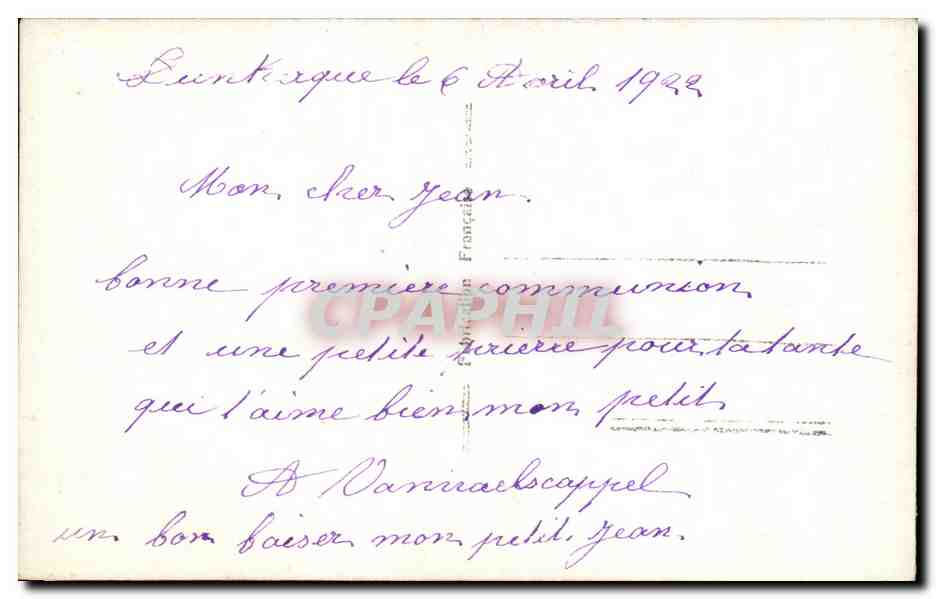 Dunkerque le 6 Avril 1922
Mon cher Jean.
bonne première communion
et une petite prière pour ta tante
qui t'aime bien mon petit
A Vanraelscappel
un bon baiser mon petit Jean.
Fabrication Française
CPAPHIL